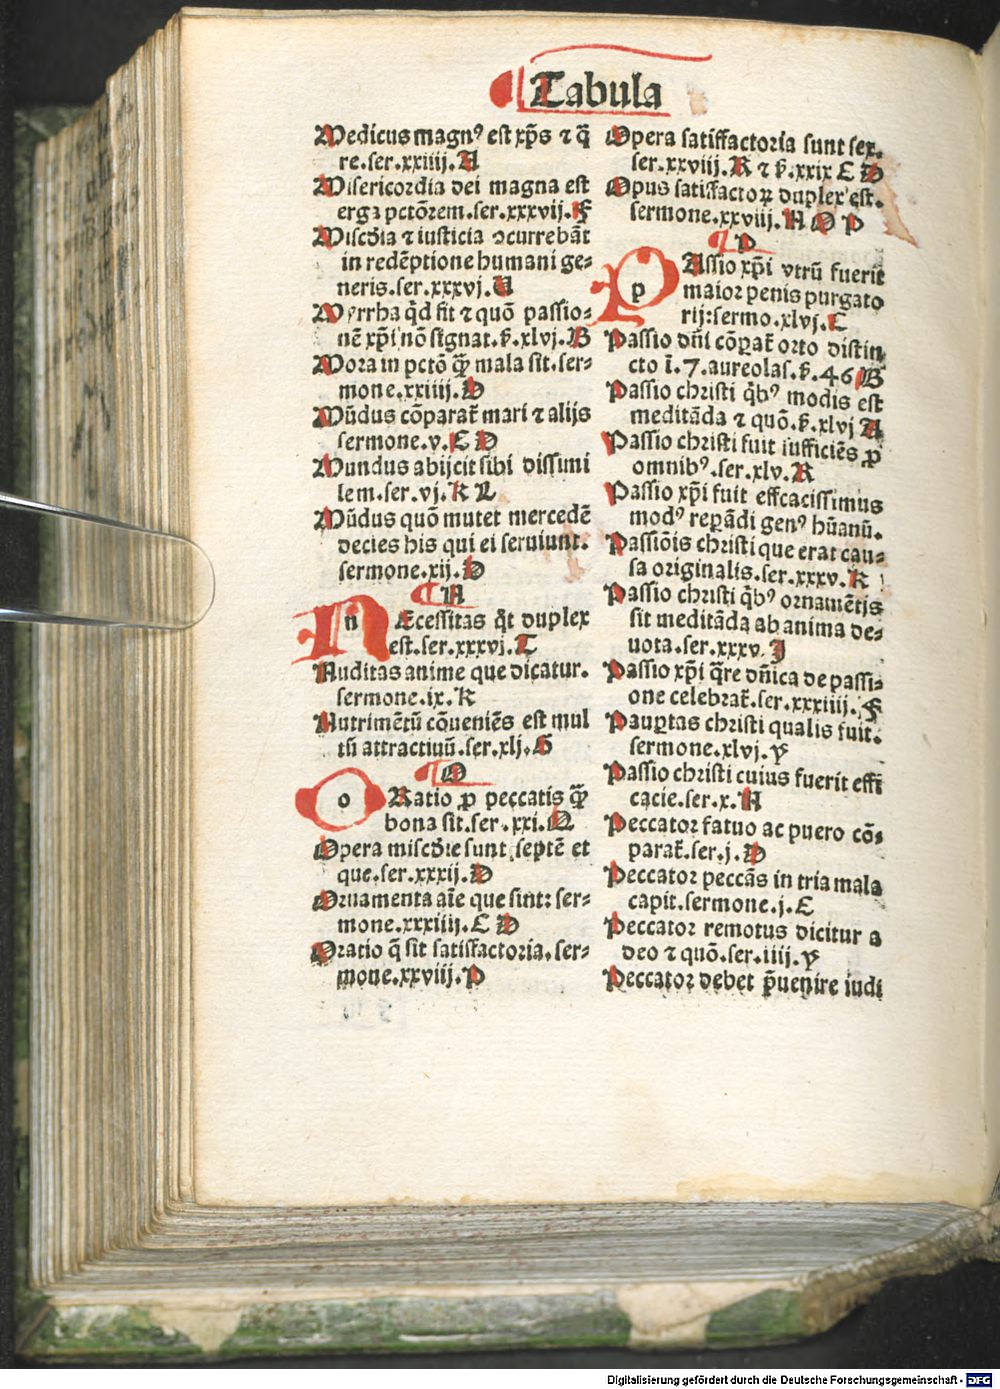 Tabula
Medicus magnꝰ est xp̄s ⁊ q̄
re.ser.xxiiij.A
Misericordia dei magna est
erga pctōrem.ser.xxxvij.F
Miscd̄ia ⁊ iusticia ↄcurrebāt
in redēptione humani ge⸗
neris.ser.xxxvj.U
Myrrha qd̄ sit ⁊ quō passio⸗
nē xp̄i nō signat.ẜ.xlvj.B
Mora in pctō q̄ꝫ mala sit.ser⸗
mone.xxiiij.D
Mūdus cōparat᷑ mari ⁊ alijs
sermone.v.C D
Mundus abijcit sibi dissimi
lem.ser.vj.K L
Mūdus quō mutet mercedē
decies his qui ei seruiunt.
sermone.xij.D
¶ N
n Ecessitas q̄t duplex
est.ser.xxxvj.T
Nuditas anime que dicatur.
sermone.ix.K
Nutrimētū cōueniēs est mul
tū attractiuū.ser.xlj.G
¶ O
o Ratio ꝓ peccatis q̄ꝫ
bona sit.ser.xxi.Q
Opera miscd̄ie sunt septē et
que.ser.xxxij.D
Ornamenta aīe que sint: ser⸗
mone.xxxiiij.C D
Oratio q̄ sit satisfactoria.ser⸗
mone.xxviij.P
Opera satisfactoria sunt sex.
ser.xxviij.R ⁊ ẜ.xxix C D
Opus satisfactoꝝ duplex est.
sermone.xxviij.N O P
¶ P
p Assio xp̄i vtrū fuerit
maior penis purgato
rij:sermo.xlvj.C
Passio dn̄i cōꝑat᷑ orto distin
cto ī.7.aureolas.ẜ.46 B
Passio christi qb̄ꝰ modis est
meditāda ⁊ quō.ẜ.xlvj A
Passio christi fuit sufficiēs ꝓ
omnibꝰ.ser.xlv.R
Passio xp̄i fuit effcacissimus
modꝰ reꝑādi genꝰ hūanū.
Passiōis christi que erat cau⸗
sa originalis.ser.xxxv.K
Passio christi qb̄ꝰ ornamētis
sit meditāda ab anima de⸗
uota.ser.xxxv.J
Passio xp̄i q̄re dn̄ica de passi⸗
one celebrat᷑.ser.xxxiiij.F
Pauꝑtas christi qualis fuit.
sermone.xlvj.Y
Passio christi cuius fuerit effi
cacie.ser.x.N
Peccator fatuo ac puero cō⸗
parat᷑.ser.j.D
Peccator peccās in tria mala
capit.sermone.j.C
Peccator remotus dicitur a
deo ⁊ quō.ser.iiij.Y
Peccator debet p̄uenire iudi
Digitalisierung gefördert durch die Deutsche Forschungsgemeinschaft - DFG